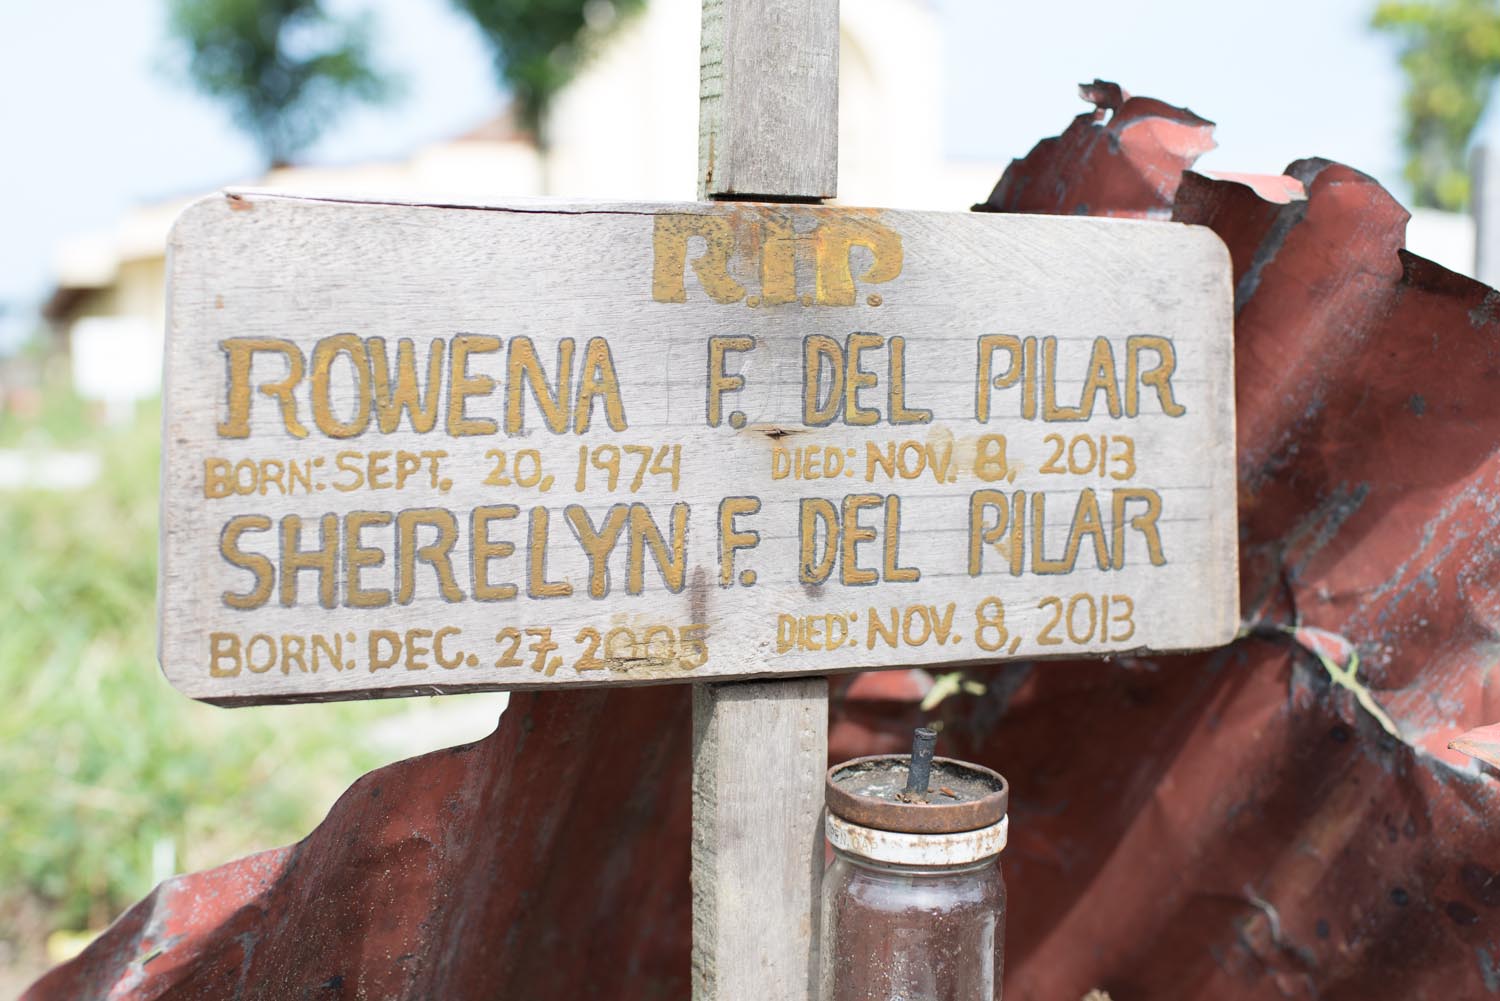 R.I.P.
ROWENA F. DEL PILAR
BORN: SEPT. 20, 1974 DIED: NOV. 8, 2013
SHERELYN F. DEL PILAR
BORN: DEC. 27, 2005 DIED: NOV. 8, 2013